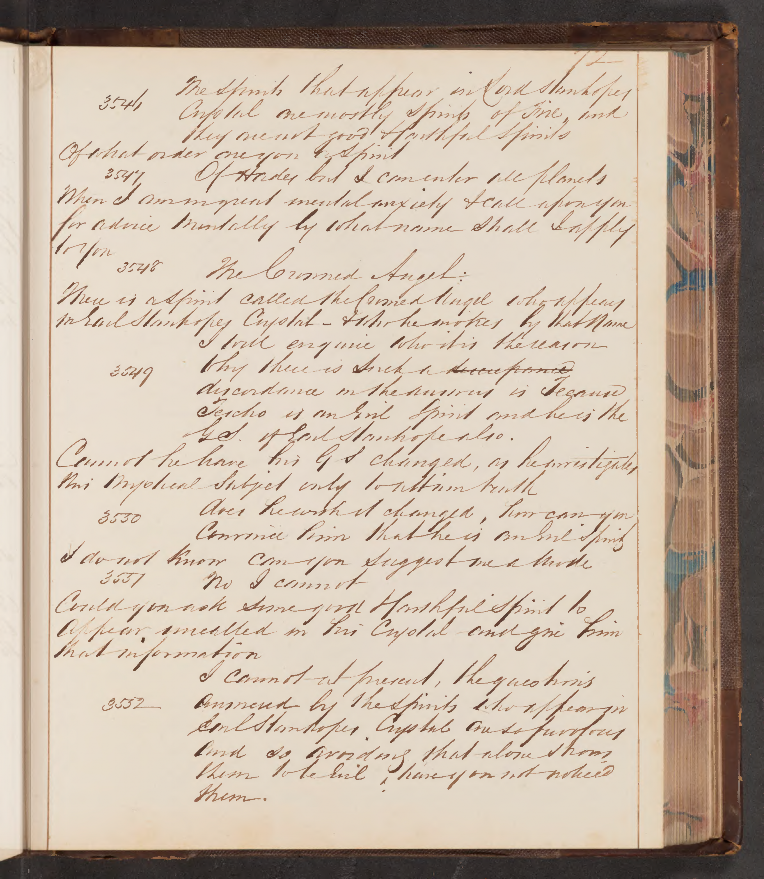 72
The Spirits that appear in Lord Stanhopes
3546 Crystal are mostly Spirits of Fire, and
they are not good & faithful Spirits
Of what order are you a Spirit
3547 Of Hades but I can enter all planets
When I am in great mental anxiety & call upon you
for advice mentally by what name shall I apply
to you
3548 The Crowned Angel:
There is a Spirit called the Crowned Angel who appears
in Earl Stanhopes Crystal – & who he invokes by that Name
I will enquire who it is the reason
3549 Why there is such a
discordance in the answers is because
is an Evil Spirit and he is the
G.S. of Earl Stanhope also.
Cannot he have his G S changed, as he investigates
this Mystical Subject only to attain truth
3550 does he wish it changed, how can you
Convince him that he is an Evil Spirit
I do not know can you suggest me a Mode
3551 No I cannot
Could you ask some good & faithful Spirit to
appear uncalled in his Crystal and give him
that information
I cannot at present, the questions
3552 answered by the Spirits who appear in
Earl Stanhopes Crystal are so frivolous
and so avoiding that alone shows
them to be Evil, have you not noticed
them.